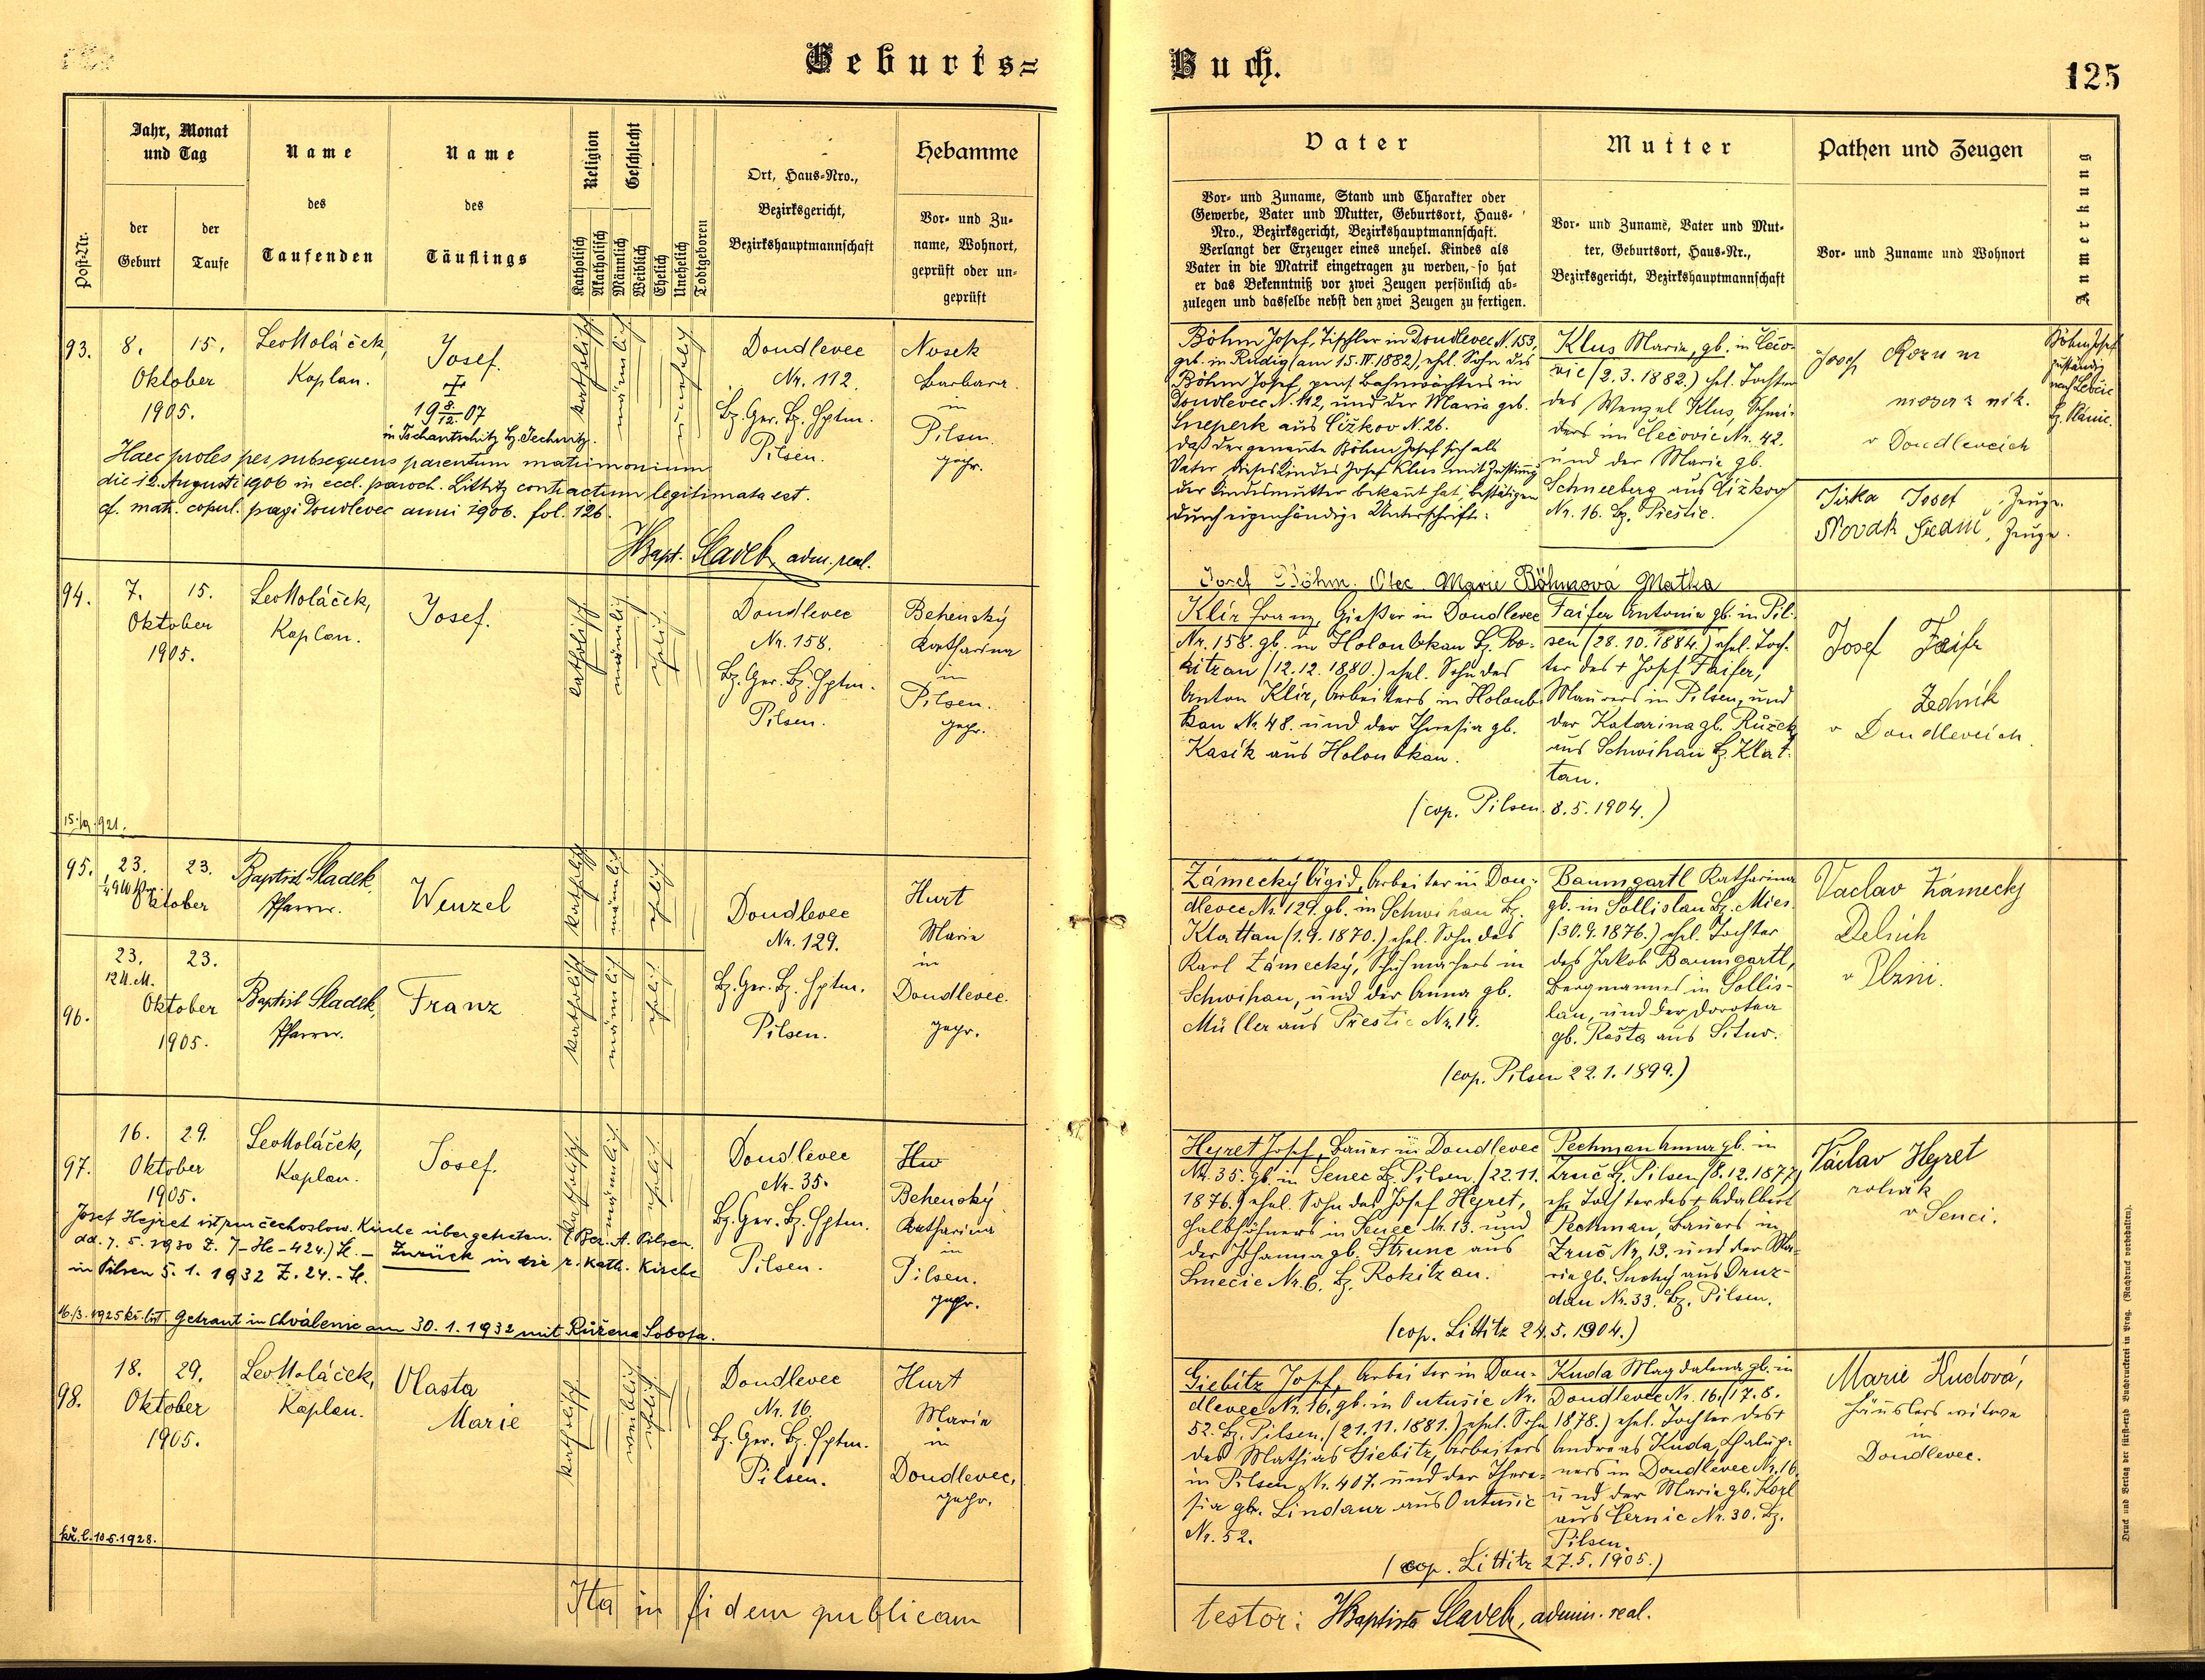 Geburts=
Buch.
125
Post-Nr.
Jahr, Monat
und Tag
der
Geburt
der
Taufe
Name
des
Taufenden
Name
des
Täuflings
Religion
Katholisch
Akatholisch
Geschlecht
Männlich
Weiblich
Ehelich
Unehelich
Todtgeboren
Ort, Haus-Nro.,
Bezirksgericht,
Bezirkshauptmannschaft
Hebamme
Vor- und Zu-
name, Wohnort,
geprüft oder un-
geprüft
Vater
Vor- und Zuname, Stand und Charakter oder
Gewerbe, Vater und Mutter, Geburtsort, Haus-
Nro., Bezirksgericht, Bezirkshauptmannschaft.
Verlangt der Erzeuger eines unehel. Kindes als
Vater in die Matrik eingetragen zu werden, so hat
er das Bekenntniß vor zwei Zeugen persönlich ab-
zulegen und dasselbe nebst den zwei Zeugen zu fertigen.
Mutter
Vor- und Zuname, Vater und Mut-
ter, Geburtsort, Haus-Nr.,
Bezirksgericht, Bezirkshauptmannschaft
Pathen und Zeugen
Vor- und Zuname und Wohnort
Anmerkung
93.
8. 15.
Oktober
1905.
Leo Moláček,
Kaplan.
Josef.
19 8/12. 07
in Tschantschitz Bz. Jechnitz.
katholisch
männlich
unehelich
Doudlevec
Nr. 112.
Bz. Ger. Bz. Hptm.
Pilsen.
Nosek
Barbara
in
Pilsen.
gepr.
Haec proles per subsequens parentum matrimonium
die 12. Augusti 1906 in eccl. paroch. Littitz contractum legitimata est.
cf. matr. copul. pagi Doudlevec anni 1906. fol. 126.
JBapt. Slavek, adm. real.
Böhm Josef, Tischler in Doudlevec N. 153,
geb. in Rudig (am 15. IV. 1882), ehel. Sohn des
Böhm Josef, pens. Bahnwächters in
Doudlevec N. 112, und der Maria geb.
Šneperk aus Čížkov N. 26.
Daß der genannte Böhm Josef sich als
Vater dieses Kindes Josef Klus mit Zustimmg
der Kindesmutter bekannt hat, bestätigen
durch eigenhändige Unterschrift:
Klus Maria, gb. in Čečo-
vic (2.3.1882.) ehel. Tochter
des Wenzel Klus, Schnei-
ders in Čečovic Nr. 42.
und der Maria gb.
Schneeberg aus Čížkov
Nr. 16. Bz. Přestic.
Josef
v Doudlevcich
Jirka Josef, Zeuge.
Novák, Zeuge.
Böhm Josef
zuständig
nach
Josef Böhm. Otec. Marie Böhmová Matka
94.
7. 15.
Oktober
1905.
Leo Moláček,
Kaplan.
Josef.
katholisch
männlich
ehelich
Doudlevec
Nr. 158.
Bz. Ger. Bz. Hptm.
Pilsen.
Behenský
Katharina
in
Pilsen.
gepr.
Klír Franz, Gießer in Doudlevec
Nr. 158. gb. in Holoubkau Bz. Ro-
kitzan (12.12.1880.) ehel. Sohn des
Anton Klír, Arbeiters in Holoub-
kau Nr. 48. und der Theresia gb.
Kasík aus Holoubkau.
Faifer Antonia gb. in Pil-
sen (28.10.1884.) ehel. Toch-
ter des + Josef Faifer,
Maurers in Pilsen, und
der Katarina gb. Růžek
aus Schwihau Bz. Klat-
tau.
(cop. Pilsen. 8.5.1904.)
Josef Faifr
Zedník
v Doudlevcich.
15./9. 921.
95.
23. 23.
Oktober
Baptist Sladek,
Pfarrer.
Wenzel
katholisch
männlich
ehelich
96.
23. 23.
12 U. M.
Oktober
1905.
Baptist Sladek,
Pfarrer.
Franz
katholisch
männlich
ehelich
Doudlevec
Nr. 129.
Bz. Ger. Bz. Hptm.
Pilsen.
Hurt
Marie
in
Doudlevec.
gepr.
Zámecký Ägid, Arbeiter in Dou-
dlevec Nr. 129. gb. in Schwihau Bz.
Klattau (1.9.1870.) ehel. Sohn des
Karl Zámecký, Schuhmachers in
Schwihau, und der Anna gb.
Müller aus Přestic Nr. 19.
Baumgartl Katharina
gb. in Sollislau Bz. Mies.
(30.9.1876.) ehel. Tochter
des Jakob Baumgartl,
Bergmannes in Sollis-
lau, und der Dorotea
gb. Rašta aus Situo.
(cop. Pilsen 22.1.1899.)
Vaclav Zámecký
Dělník
v Plzni.
97.
16. 29.
Oktober
1905.
Leo Moláček,
Kaplan.
Josef.
katholisch
männlich
ehelich
Doudlevec
Nr. 35.
Bz. Ger. Bz. Hptm.
Pilsen.
Hu
Behenský
Katharina
in
Pilsen.
gepr.
Josef Hejret ist zur čechoslow. Kirche übergetreten. (Bez. A. Pilsen.
dd. 7. 5. 1930 Z. 7-He-424.) Sl. — Zurück in die r. kath. Kirche
in Pilsen 5. 1. 1932 Z. 24. - Sl.
16./3. 1925 kř. list. Getraut in Chválenic am 30. 1. 1932 mit Růžena Sobota.
Heyret Josef, Bauer in Doudlevec
Nr. 35. gb. in Senec Bz. Pilsen. (22.11.
1876.) ehel. Sohn des Josef Heyret,
Halbhöfners in Senec Nr. 13. und
der Johanna gb. Strunc aus
Smečic Nr. 6. Bz. Rokitzan.
Pechman Anna gb. in
Zruč Bz. Pilsen (8.12.1877)
eh. Tochter des + Adalbert
Pechman, Bauers in
Zruč Nr. 13. und der Ma-
rie gb. Suchý aus Druz-
dau Nr. 33. Bz. Pilsen.
(cop. Littitz 24.5.1904.)
Václav Heyret
rolník
v Senci.
98.
18. 29.
Oktober
1905.
Leo Moláček,
Kaplan.
Vlasta
Marie
katholisch
weiblich
ehelich
Doudlevec
Nr. 16.
Bz. Ger. Bz. Hptm.
Pilsen.
Hurt
Marie
in
Doudlevec,
gepr.
kř. l. 10.5.1928.
Giebitz Josef, Arbeiter in Dou-
dlevec Nr. 16. gb. in Outušic Nr.
52. Bz. Pilsen. (21.11.1881.) ehel. Sohn
des Mathias Giebitz, Arbeiters
in Pilsen Nr. 407. und der There-
sia gb. Lindaur aus Outušic
Nr. 52.
Kuda Magdalena gb. in
Doudlevec Nr. 16. (17.8.
1878.) ehel. Tochter des +
Andreas Kuda, Chalup-
ners in Doudlevec Nr. 16.
und der Marie gb. Kozl
aus Černic Nr. 30. Bz.
Pilsen.
(cop. Littitz 27.5.1905.)
Marie Kudová,
Häuslers witwe
in
Doudlevec.
Ita in fidem publicam
testor: JBaptista Slavek, admin. real.
Druck und Verlag der fürst-erzb. Buchdruckerei in Prag. (Nachdruck vorbehalten).